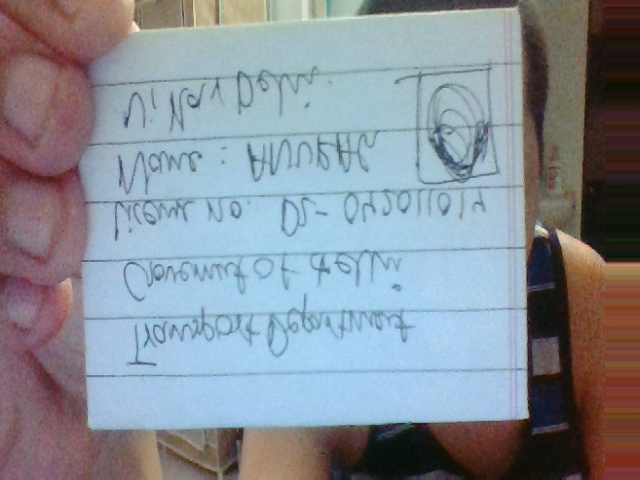 Transport Department
Goverment of Delhi
Licence No. DL- 042011014
Name : ANURAG
New Delhi